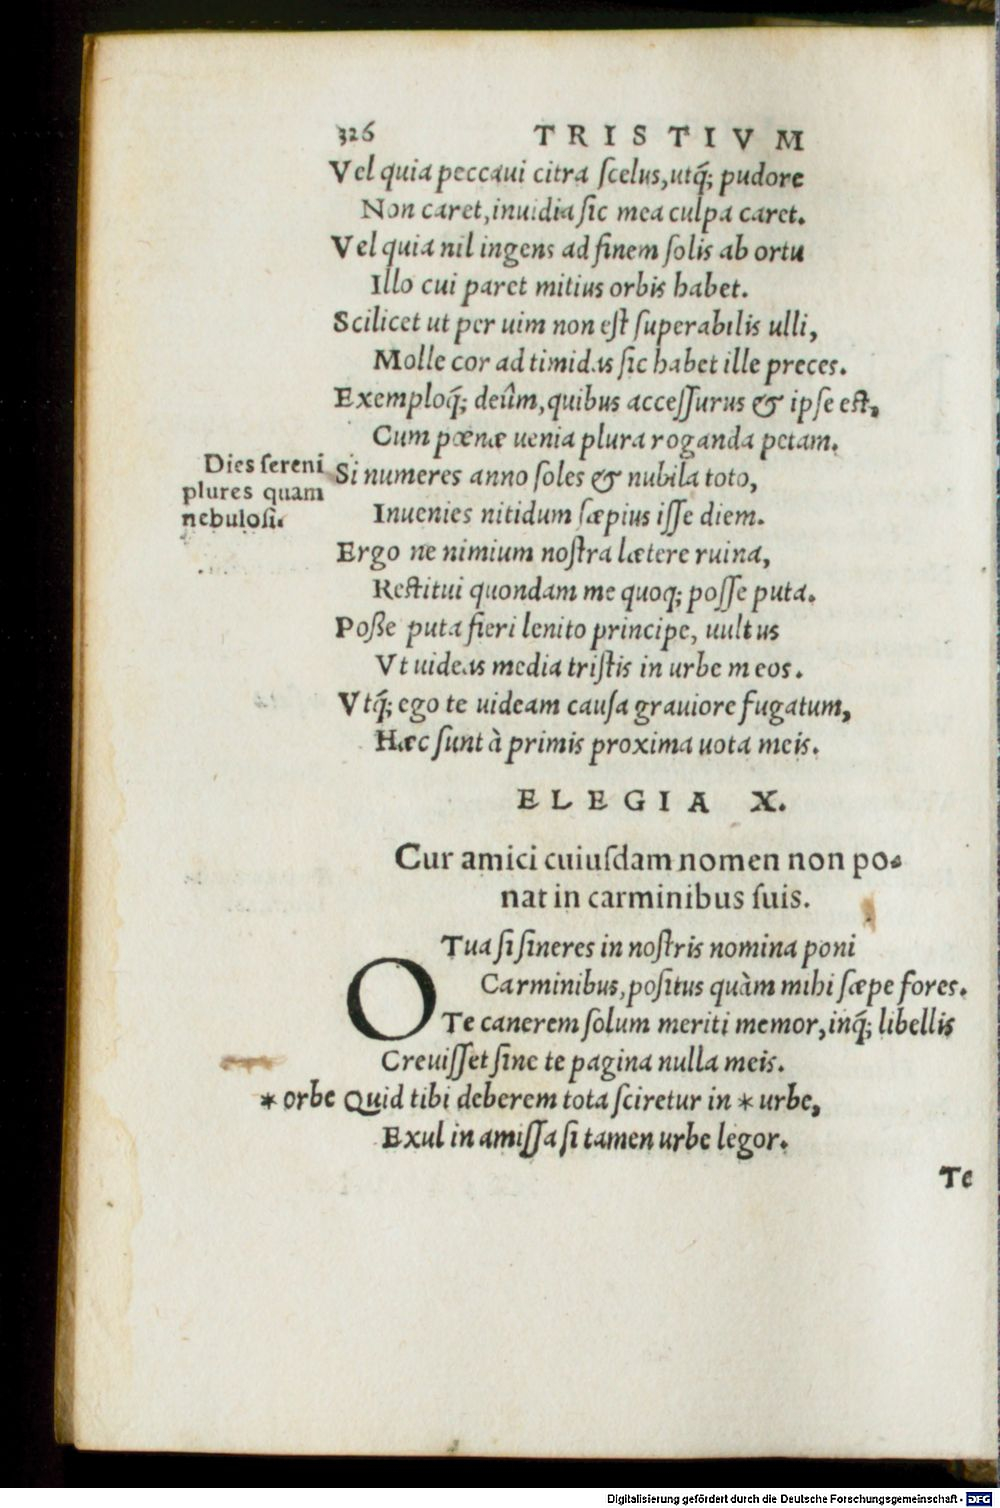 326 TRISTIVM
Vel quia peccaui citra ſcelus, utq́; pudore
Non caret, inuidia ſic mea culpa caret.
Vel quia nil ingens ad finem ſolis ab ortu
Illo cui paret mitius orbis habet.
Scilicet ut per uim non eſt ſuperabilis ulli,
Molle cor ad timidas ſic habet ille preces.
Exemploq́; deûm, quibus acceſſurus & ipſe eſt,
Cum pœnæ uenia plura roganda petam.
Dies ſereni
plures quam
nebuloſi.
Si numeres anno ſoles & nubila toto,
Inuenies nitidum ſæpius iſſe diem.
Ergo ne nimium noſtra lætere ruina,
Reſtitui quondam me quoq; poſſe puta.
Poße puta fieri lenito principe, uultus
Vt uideas media triſtis in urbe meos.
Vtq́; ego te uideam cauſa grauiore fugatum,
Hæc ſunt à primis proxima uota meis.
ELEGIA X.
Cur amici cuiuſdam nomen non po-
nat in carminibus ſuis.
O Tua ſi ſineres in noſtris nomina poni
Carminibus, poſitus quàm mihi ſæpe fores.
Te canerem ſolum meriti memor, inq́; libellis
Creuiſſet ſine te pagina nulla meis.
* orbe Quid tibi deberem tota ſciretur in * urbe,
Exul in amiſſa ſi tamen urbe legor.
Te
Digitalisierung gefördert durch die Deutsche Forschungsgemeinschaft - DFG